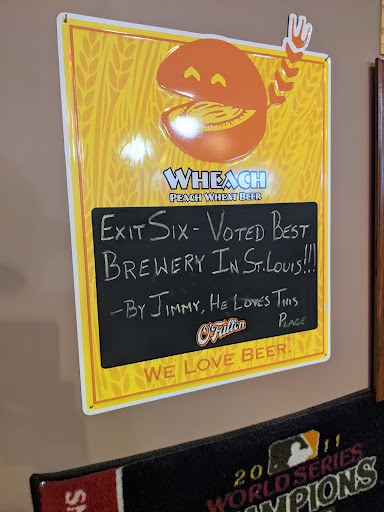 WHEACH
PEACH WHEAT BEER
EXIT SIX - VOTED BEST
BREWERY IN ST. LOUIS!!!
-BY JIMMY, HE LOVES THIS
PLACE
O'Fallon
WE LOVE BEER.
2011
WORLD SERIES